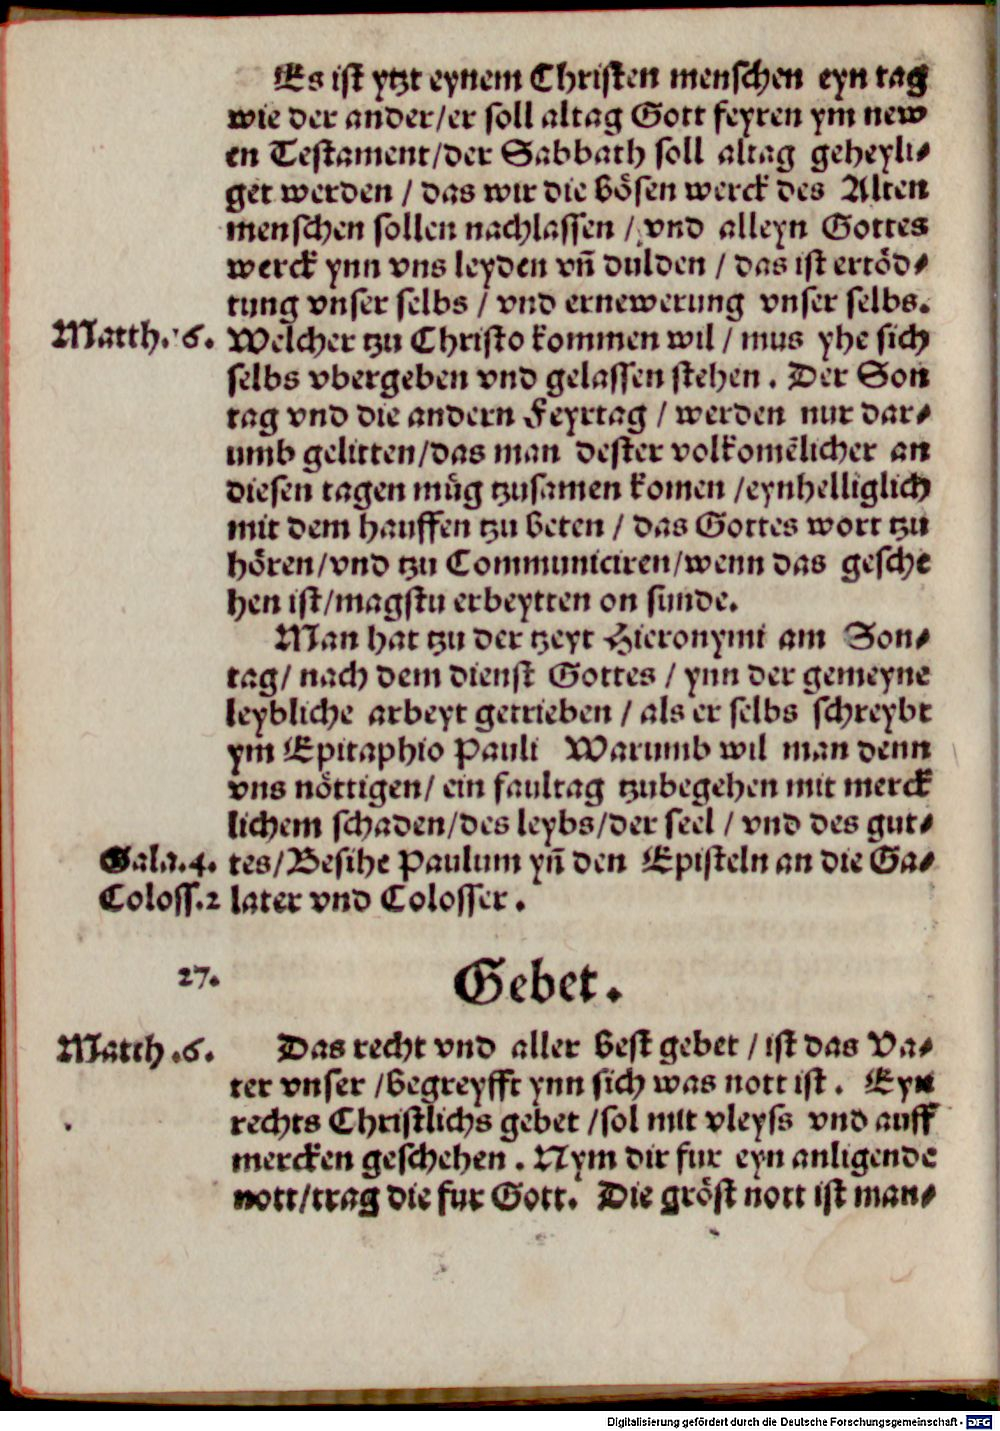 Es ist ytzt eynem Christen menschen eyn tag
wie der ander/er soll altag Gott feyren ym new
en Testament/der Sabbath soll altag geheyli⸗
get werden / das wir die bösen werck des Alten
menschen sollen nachlassen / vnd alleyn Gottes
werck ynn vns leyden vñ dulden / das ist ertöd⸗
tung vnser selbs / vnd ernewerung vnser selbs.
Matth. 16. Welcher tzu Christo kommen wil / mus yhe sich
selbs vbergeben vnd gelassen stehen . Der Son
tag vnd die andern Feyrtag / werden nur dar⸗
umb gelitten/das man dester volkomẽlicher an
diesen tagen müg tzusamen komen /eynhelliglich
mit dem hauffen tzu beten / das Gottes wort tzu
hören/vnd tzu Communiciren/wenn das gesche
hen ist/magstu erbeytten on sunde.
Man hat tzu der tzeyt Hieronymi am Son⸗
tag/ nach dem dienst Gottes / ynn der gemeyne
leybliche arbeyt getrieben / als er selbs schreybt
ym Epitaphio Pauli Warumb wil man denn
vns nöttigen/ ein faultag tzubegehen mit merck
lichem schaden/des leybs/der seel / vnd des gut⸗
Gala.4. tes/Besihe Paulum yñ den Episteln an die Ga⸗
Coloss.2 later vnd Colosser .
27. Gebet .
Matth .6. Das recht vnd aller best gebet / ist das Va⸗
ter vnser /begreyfft ynn sich was nott ist . Eyn
rechts Christlichs gebet /sol mit vleyss vnd auff
mercken geschehen . Nym dir fur eyn anligende
nott/trag die fur Gott. Die gröst nott ist man⸗
Digitalisierung gefördert durch die Deutsche Forschungsgemeinschaft - DFG